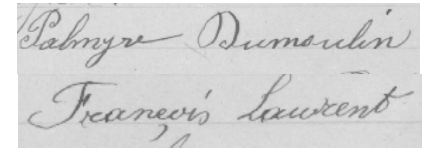 Palmyre Dumoulin
François Laurent